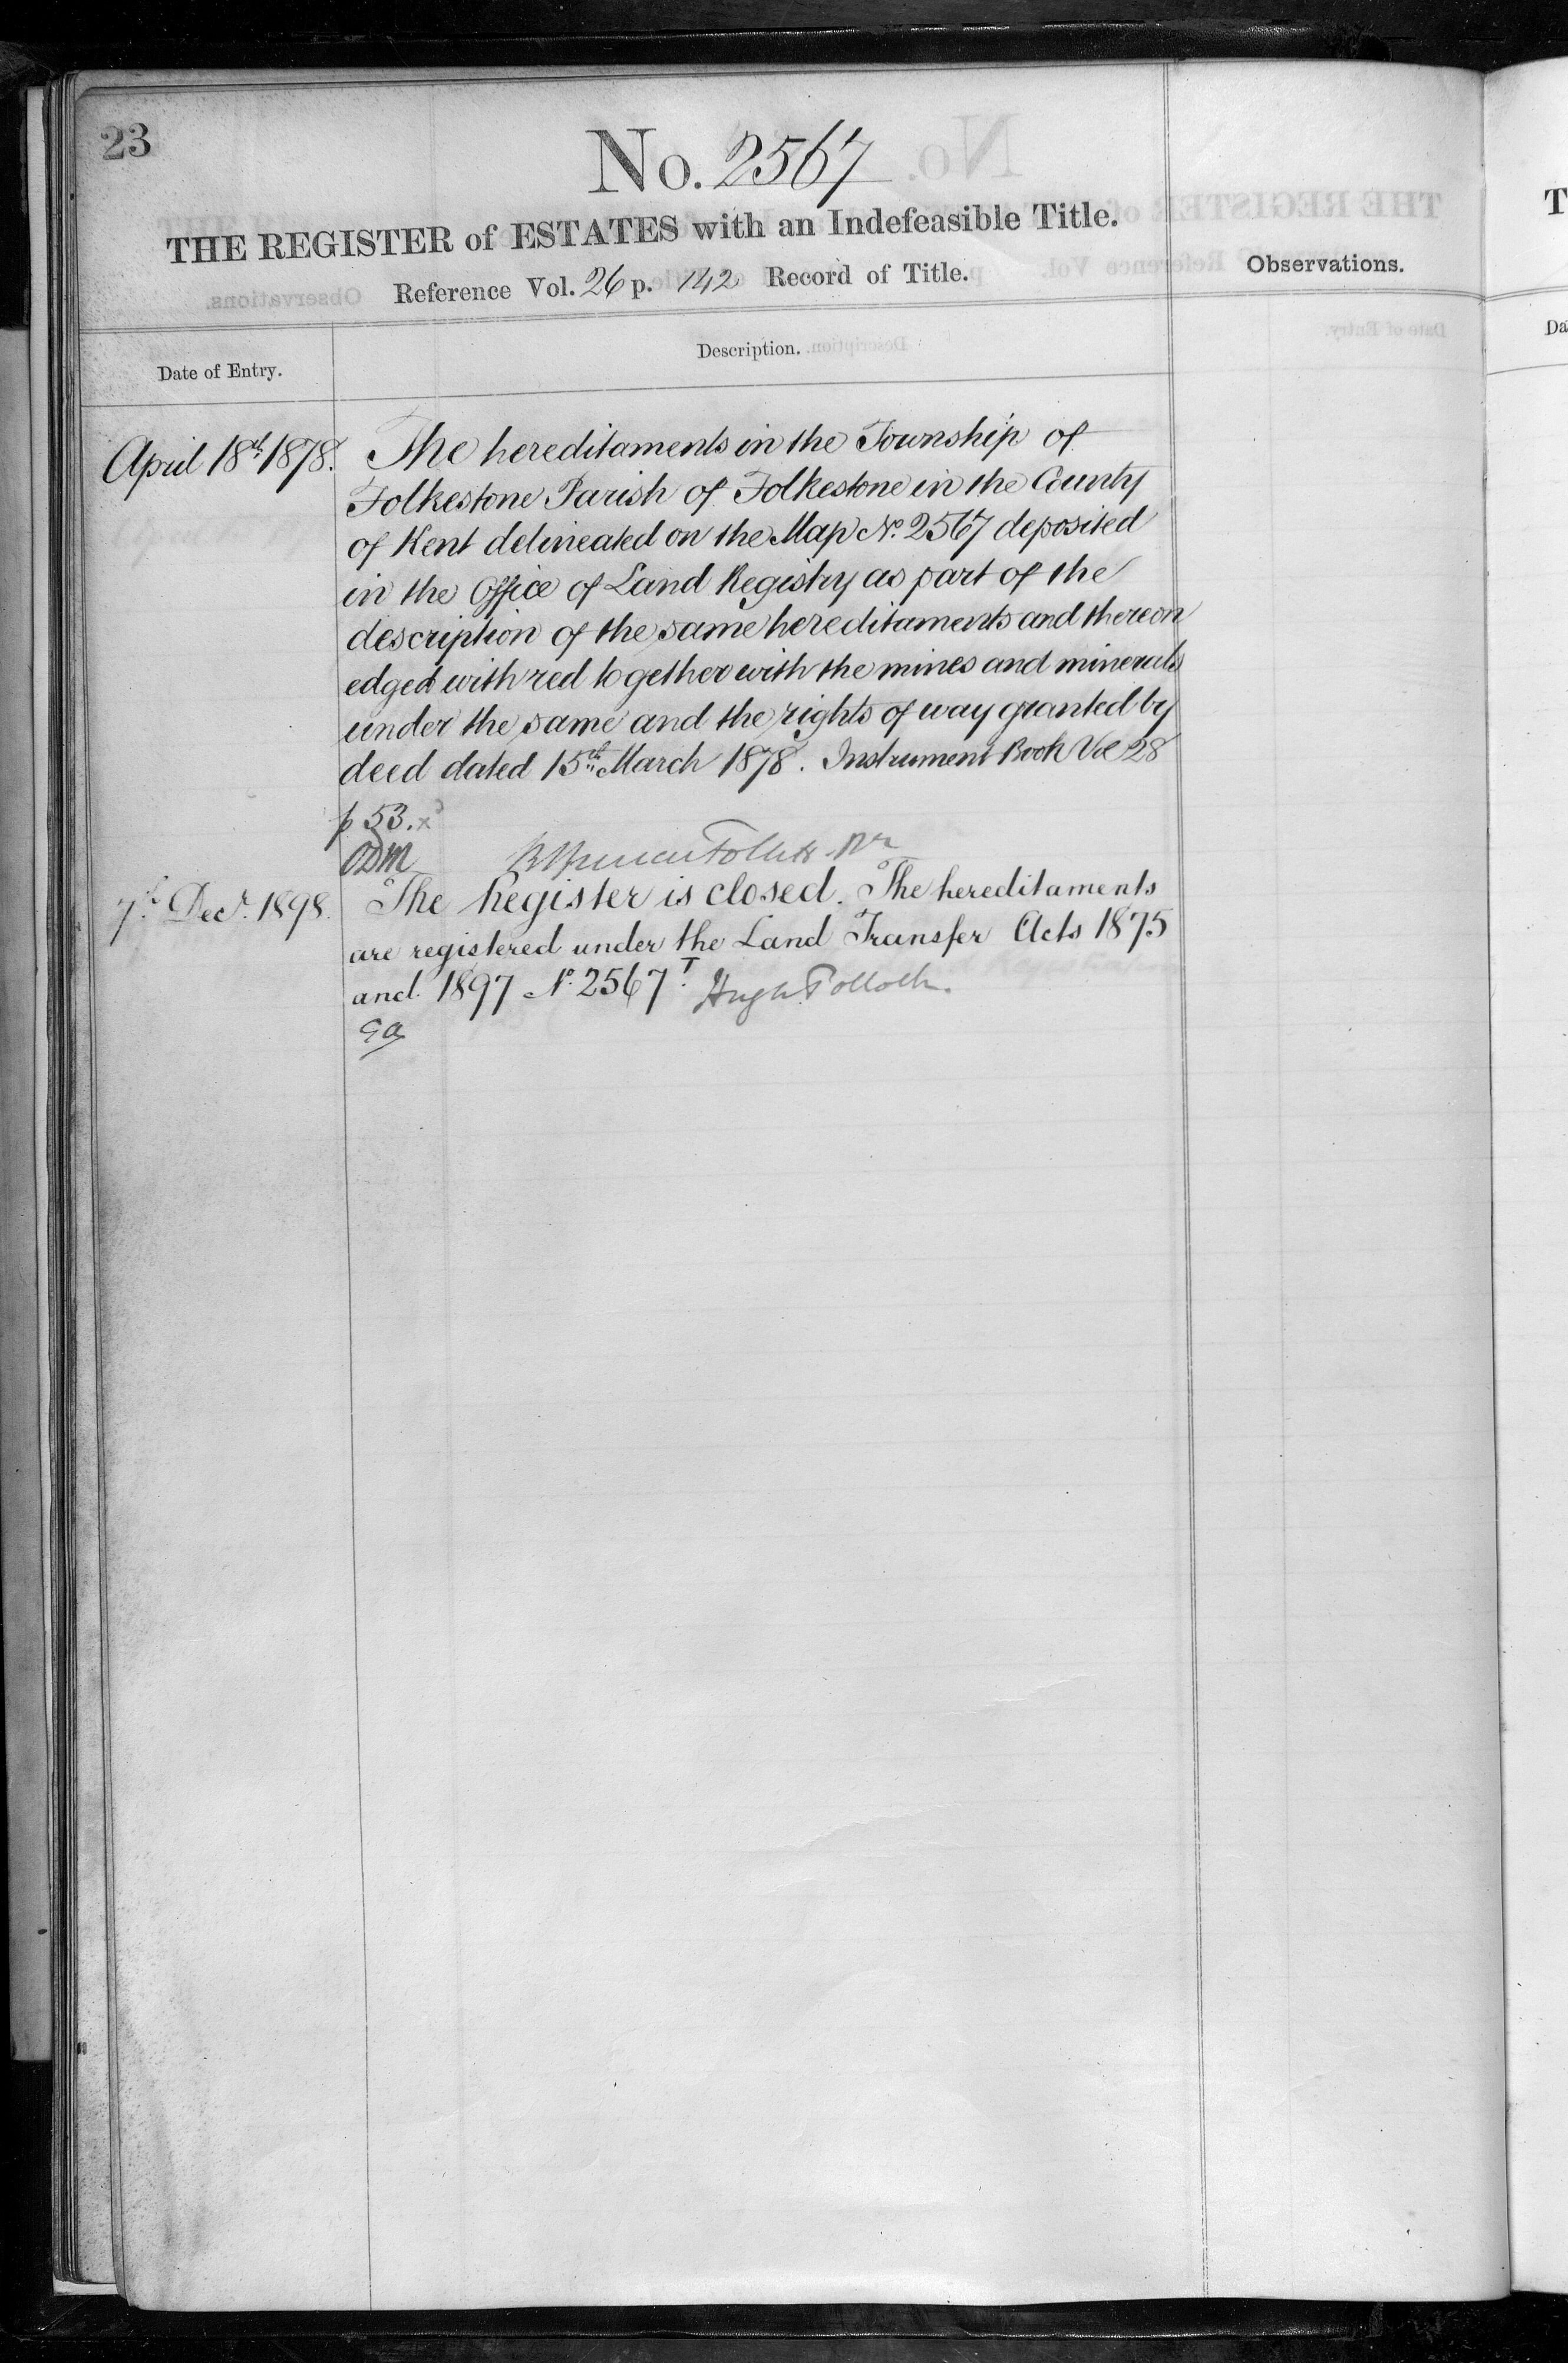 23
No. 2567
THE REGISTER of ESTATES with an Indefeasible Title.
Reference Vol. 26 p. 142 Record of Title.
Observations.
Date of Entry.
Description.
April 18th 1878.
The hereditaments in the Township of
Folkestone Parish of Folkestone in the County
of Kent delineated on the Map No. 2567 deposited
in the Office of Land Registry as part of the
description of the same hereditaments and thereon
edged with red together with the mines and minerals
under the same and the rights of way granted by
deed dated 15th March 1878. Instrument Book Vol 28
p 53. x
ODM
Follett
7th Decr. 1898.
The Register is closed. The hereditaments
are registered under the Land Transfer Acts 1875
and 1897 No. 2567 T. Hugh Pollock.
T
Da